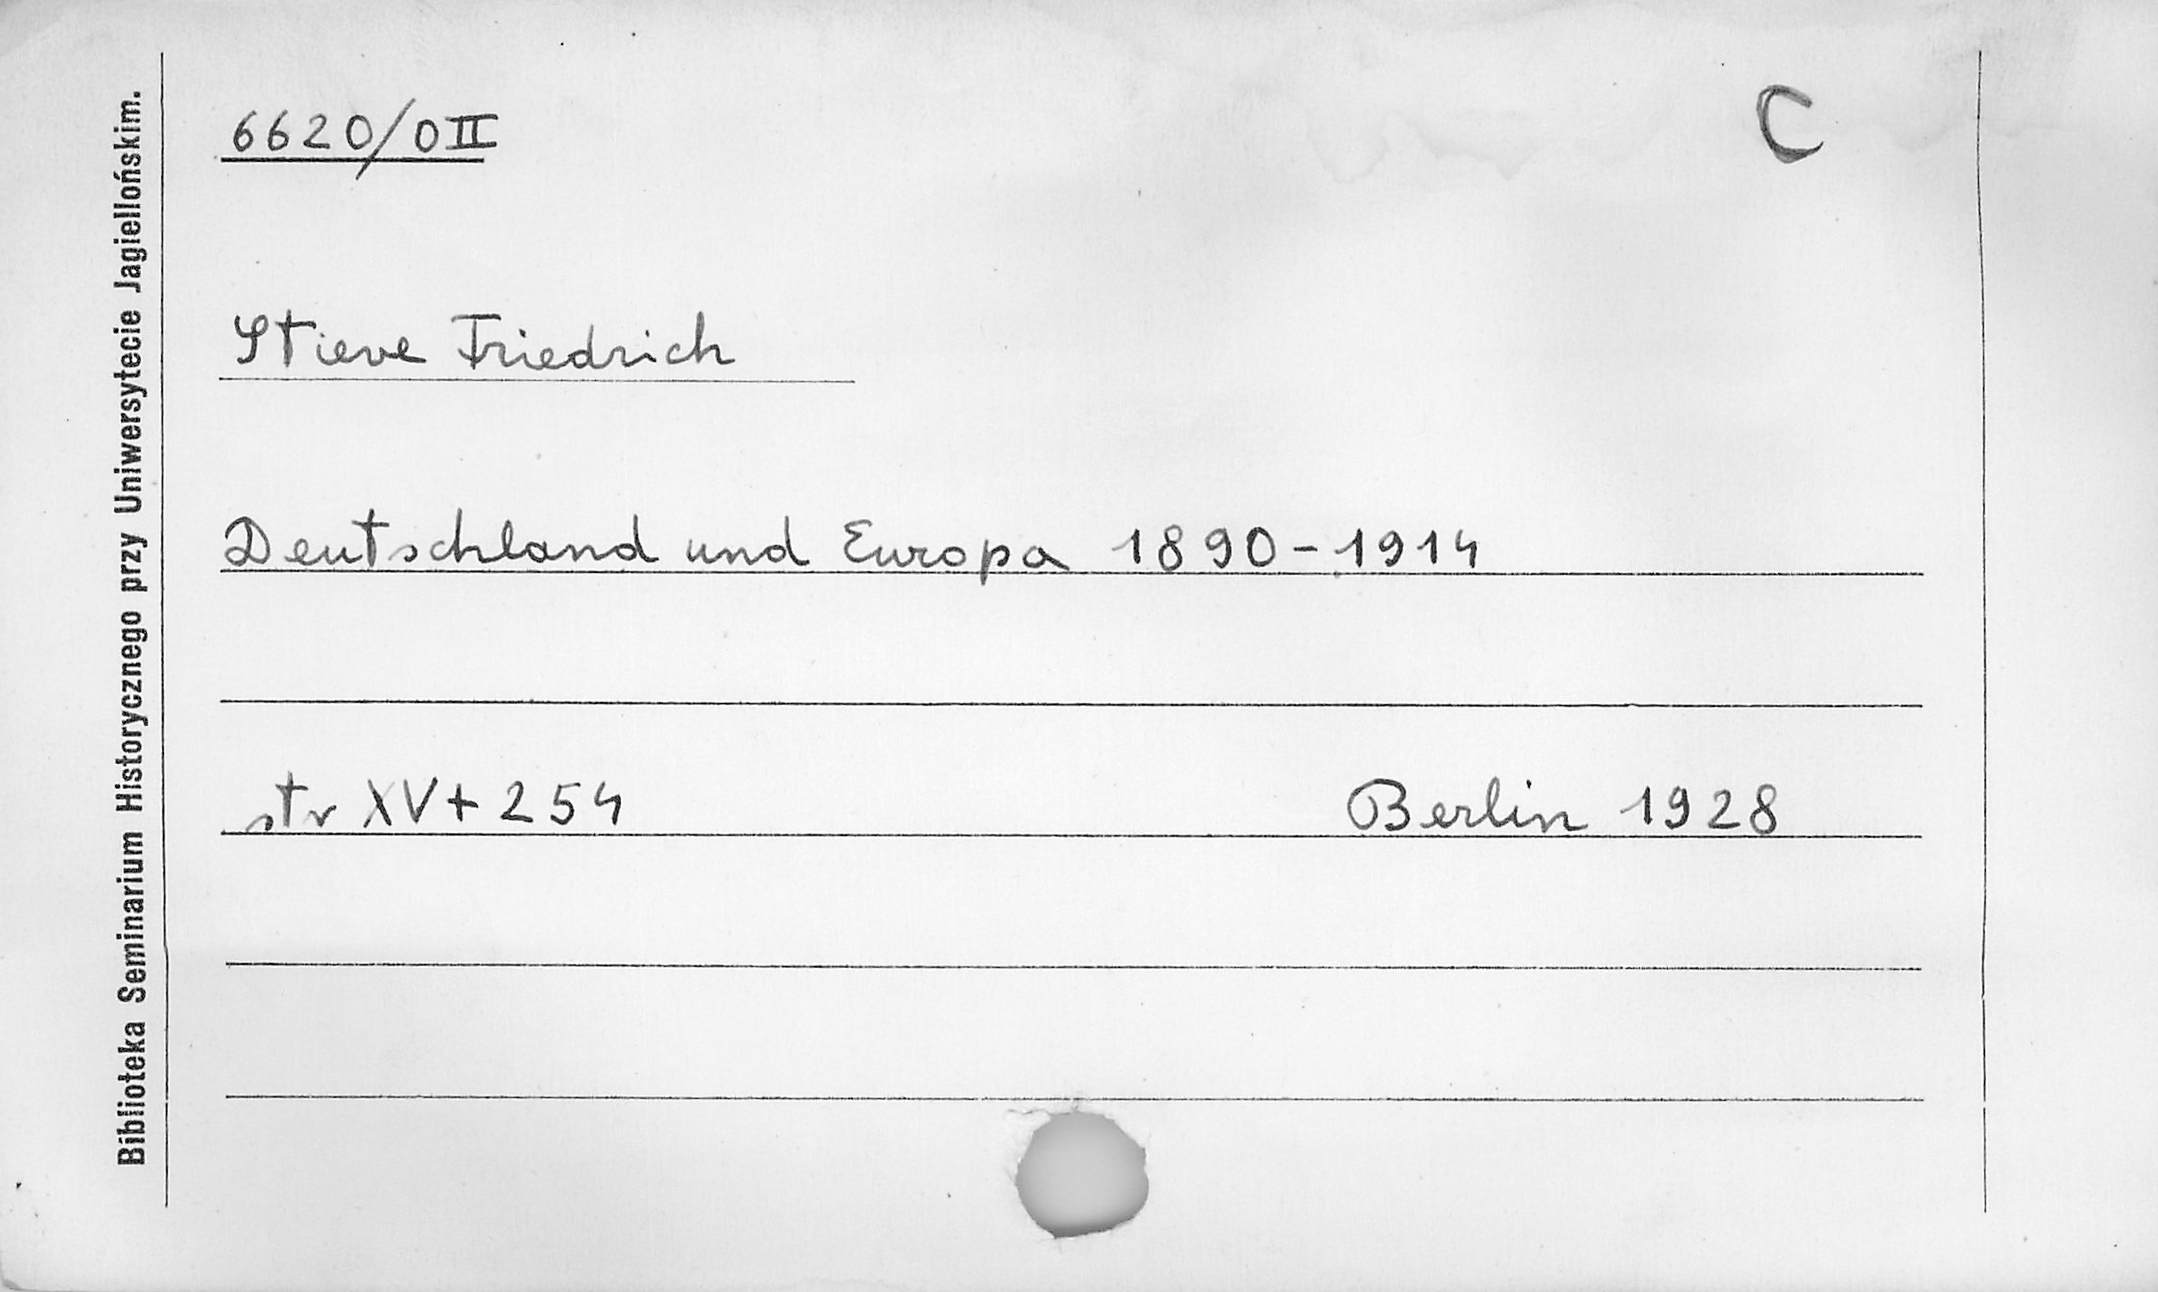 6620/0II
C
Stieve Friedrich
Deutschland und Europa 1890-1914
str XV+254 Berlin 1928
Biblioteka Seminarium Historycznego przy Uniwersytecie Jagiellońskim.